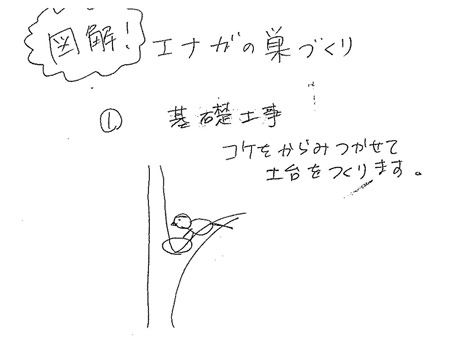 図解! エナガの巣づくり
① 基礎工事
コケをからみつかせて
土台をつくります。